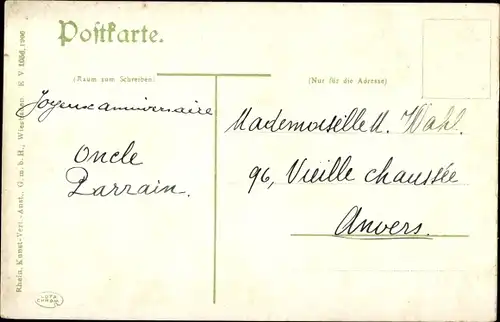 Postkarte.
(Raum zum Schreiben)
(Nur für die Adresse)
Joyeux anniversaire
Oncle
Parrain.
Mademoiselle M. Wahl.
96, Vieille chaussée
Anvers.
Rhein. Kunst-Verl.-Anst., G. m. b. H., Wiesbaden. K V 1686, 1906